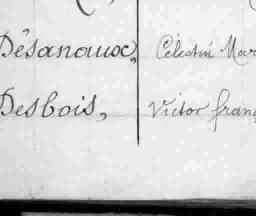 Désanaux, Célestin Mar
Desbois, Victor franç